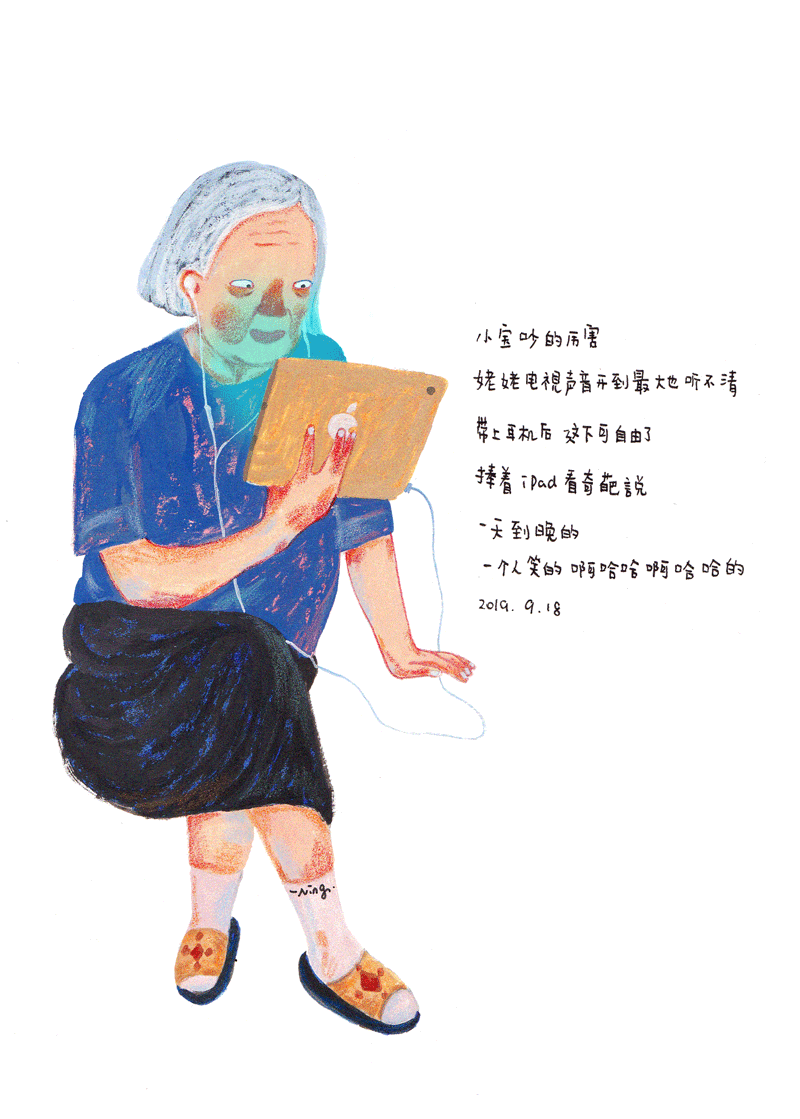 小宝吵的厉害
姥姥电視声音开到最大也听不清
帶上耳机后 这下可自由了
捧着 iPad 看奇葩説
一天到晚的
一个人笑的 啊哈哈 啊哈哈的
2019. 9. 18
Ning.